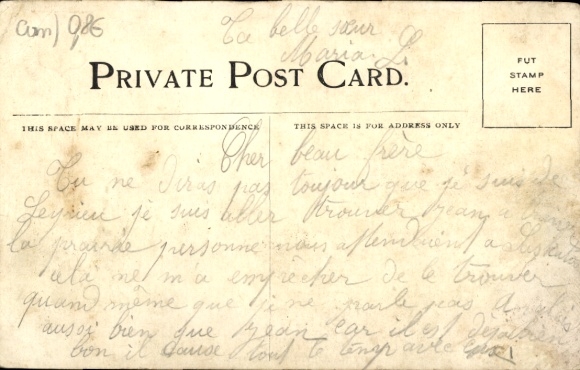 Cam) 986
Ta belle sœur
Maria L.
PRIVATE POST CARD.
PUT
STAMP
HERE
THIS SPACE MAY BE USED FOR CORRESPONDENCE
THIS SPACE IS FOR ADDRESS ONLY
Cher beau frère
Tu ne diras pas toujour que je suis de
je suis aller trouver Jean a
la prairie personne nous attendaient a
cela ne m a empêcher de le trouver
quand même que je ne parle pas Anglais
aussi bien que Jean car il est déja bien
bon il cause tout le temp avec eux